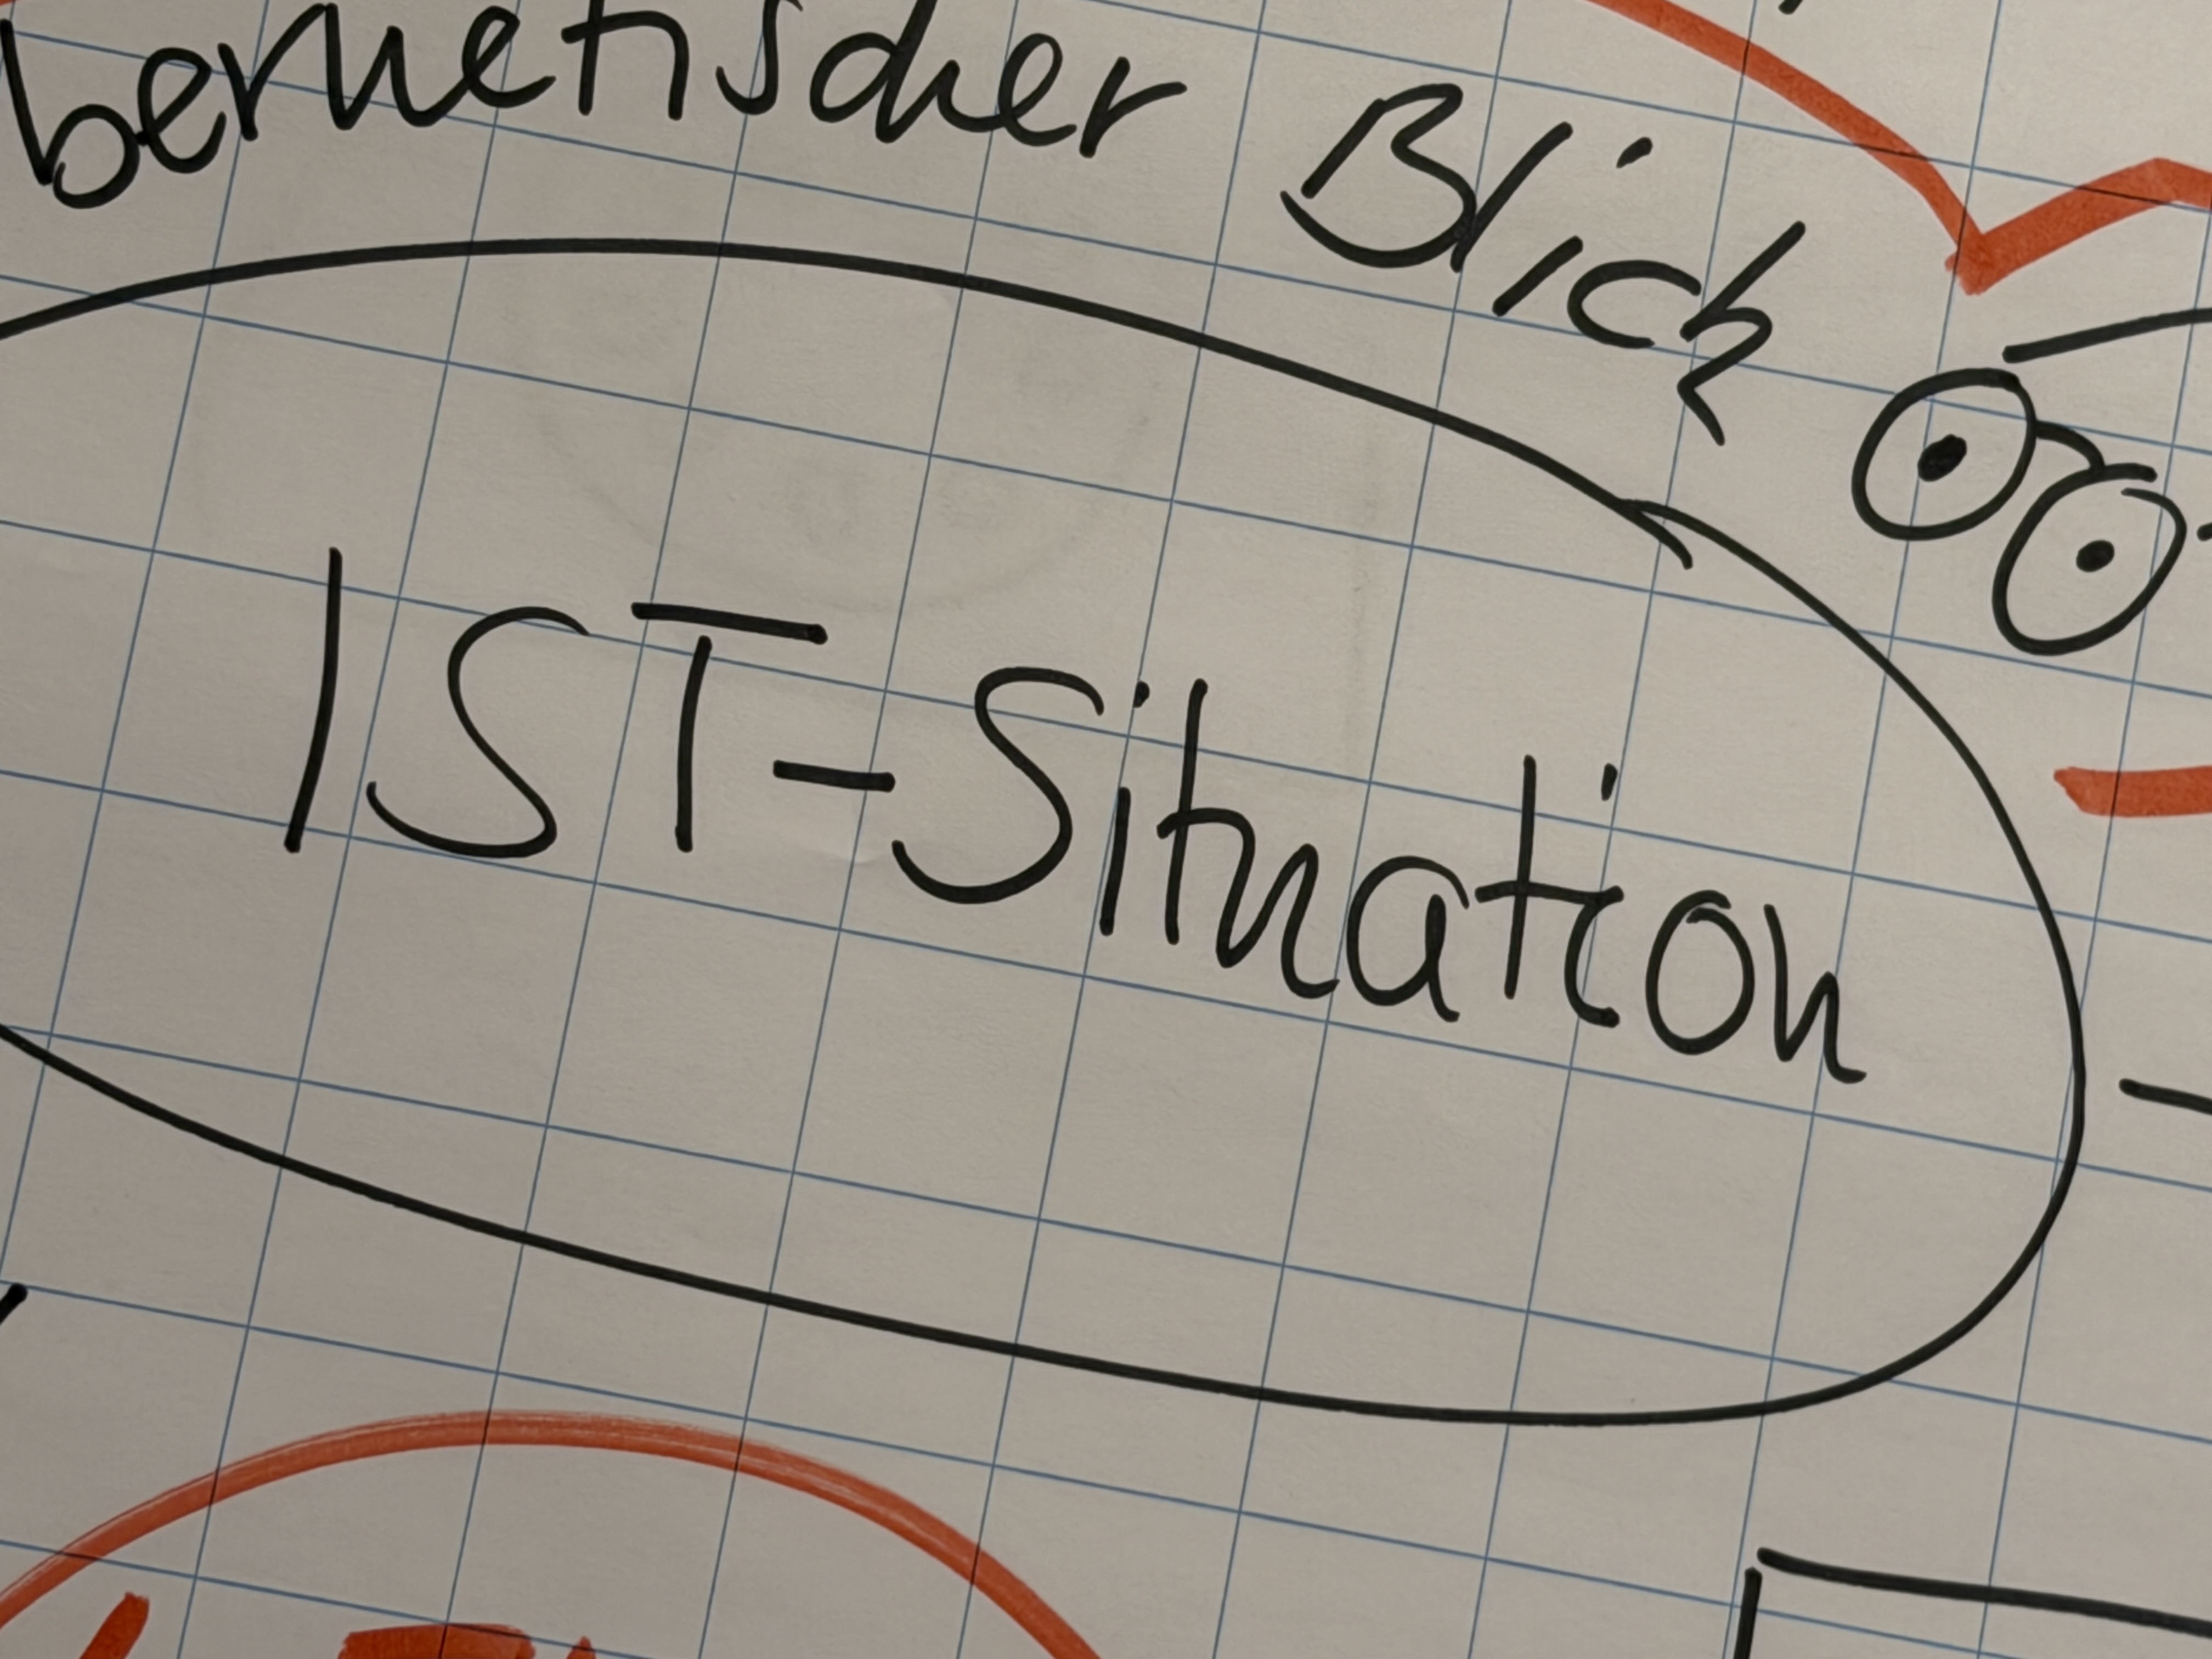 bernetischer Blick
IST-Situation